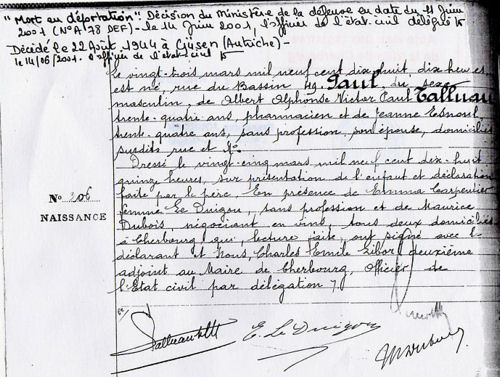 "Mort en déportation". Décision du Ministère de la défense en date du 11 Juin
2001 (N° A 178 DEF) - le 14 Juin 2001, l'officier de l'état civil délégué
Décédé le 22 Août 1944 à Güsen (Autriche) -
le 14/06/2001. L'officier de l'état civil
Le vingt-trois mars mil neuf cent dix-huit, dix heures
est né, rue du Bassin 49, Paul, du sexe
masculin, de Albert Alphonse Victor Paul Talluau
trente-quatre ans, pharmacien et de Jeanne
trente-quatre ans, sans profession, son épouse, domiciliés
susdits rue et N°.
Dressé le vingt-cinq mars mil neuf cent dix-huit
quinze heures, sur présentation de l'enfant et déclaration
faite par le père. En présence de Emma Carpentier
femme Le Duigou, sans profession et de Maurice
Dubois, négociant en vins, tous deux domiciliés
à Cherbourg qui, lecture faite, ont signé avec le
déclarant et Nous, Charles Emile deuxième
adjoint au Maire de Cherbourg, Officier de
l'Etat civil par délégation
N° 206
NAISSANCE
Talluau
E. Le Duigou